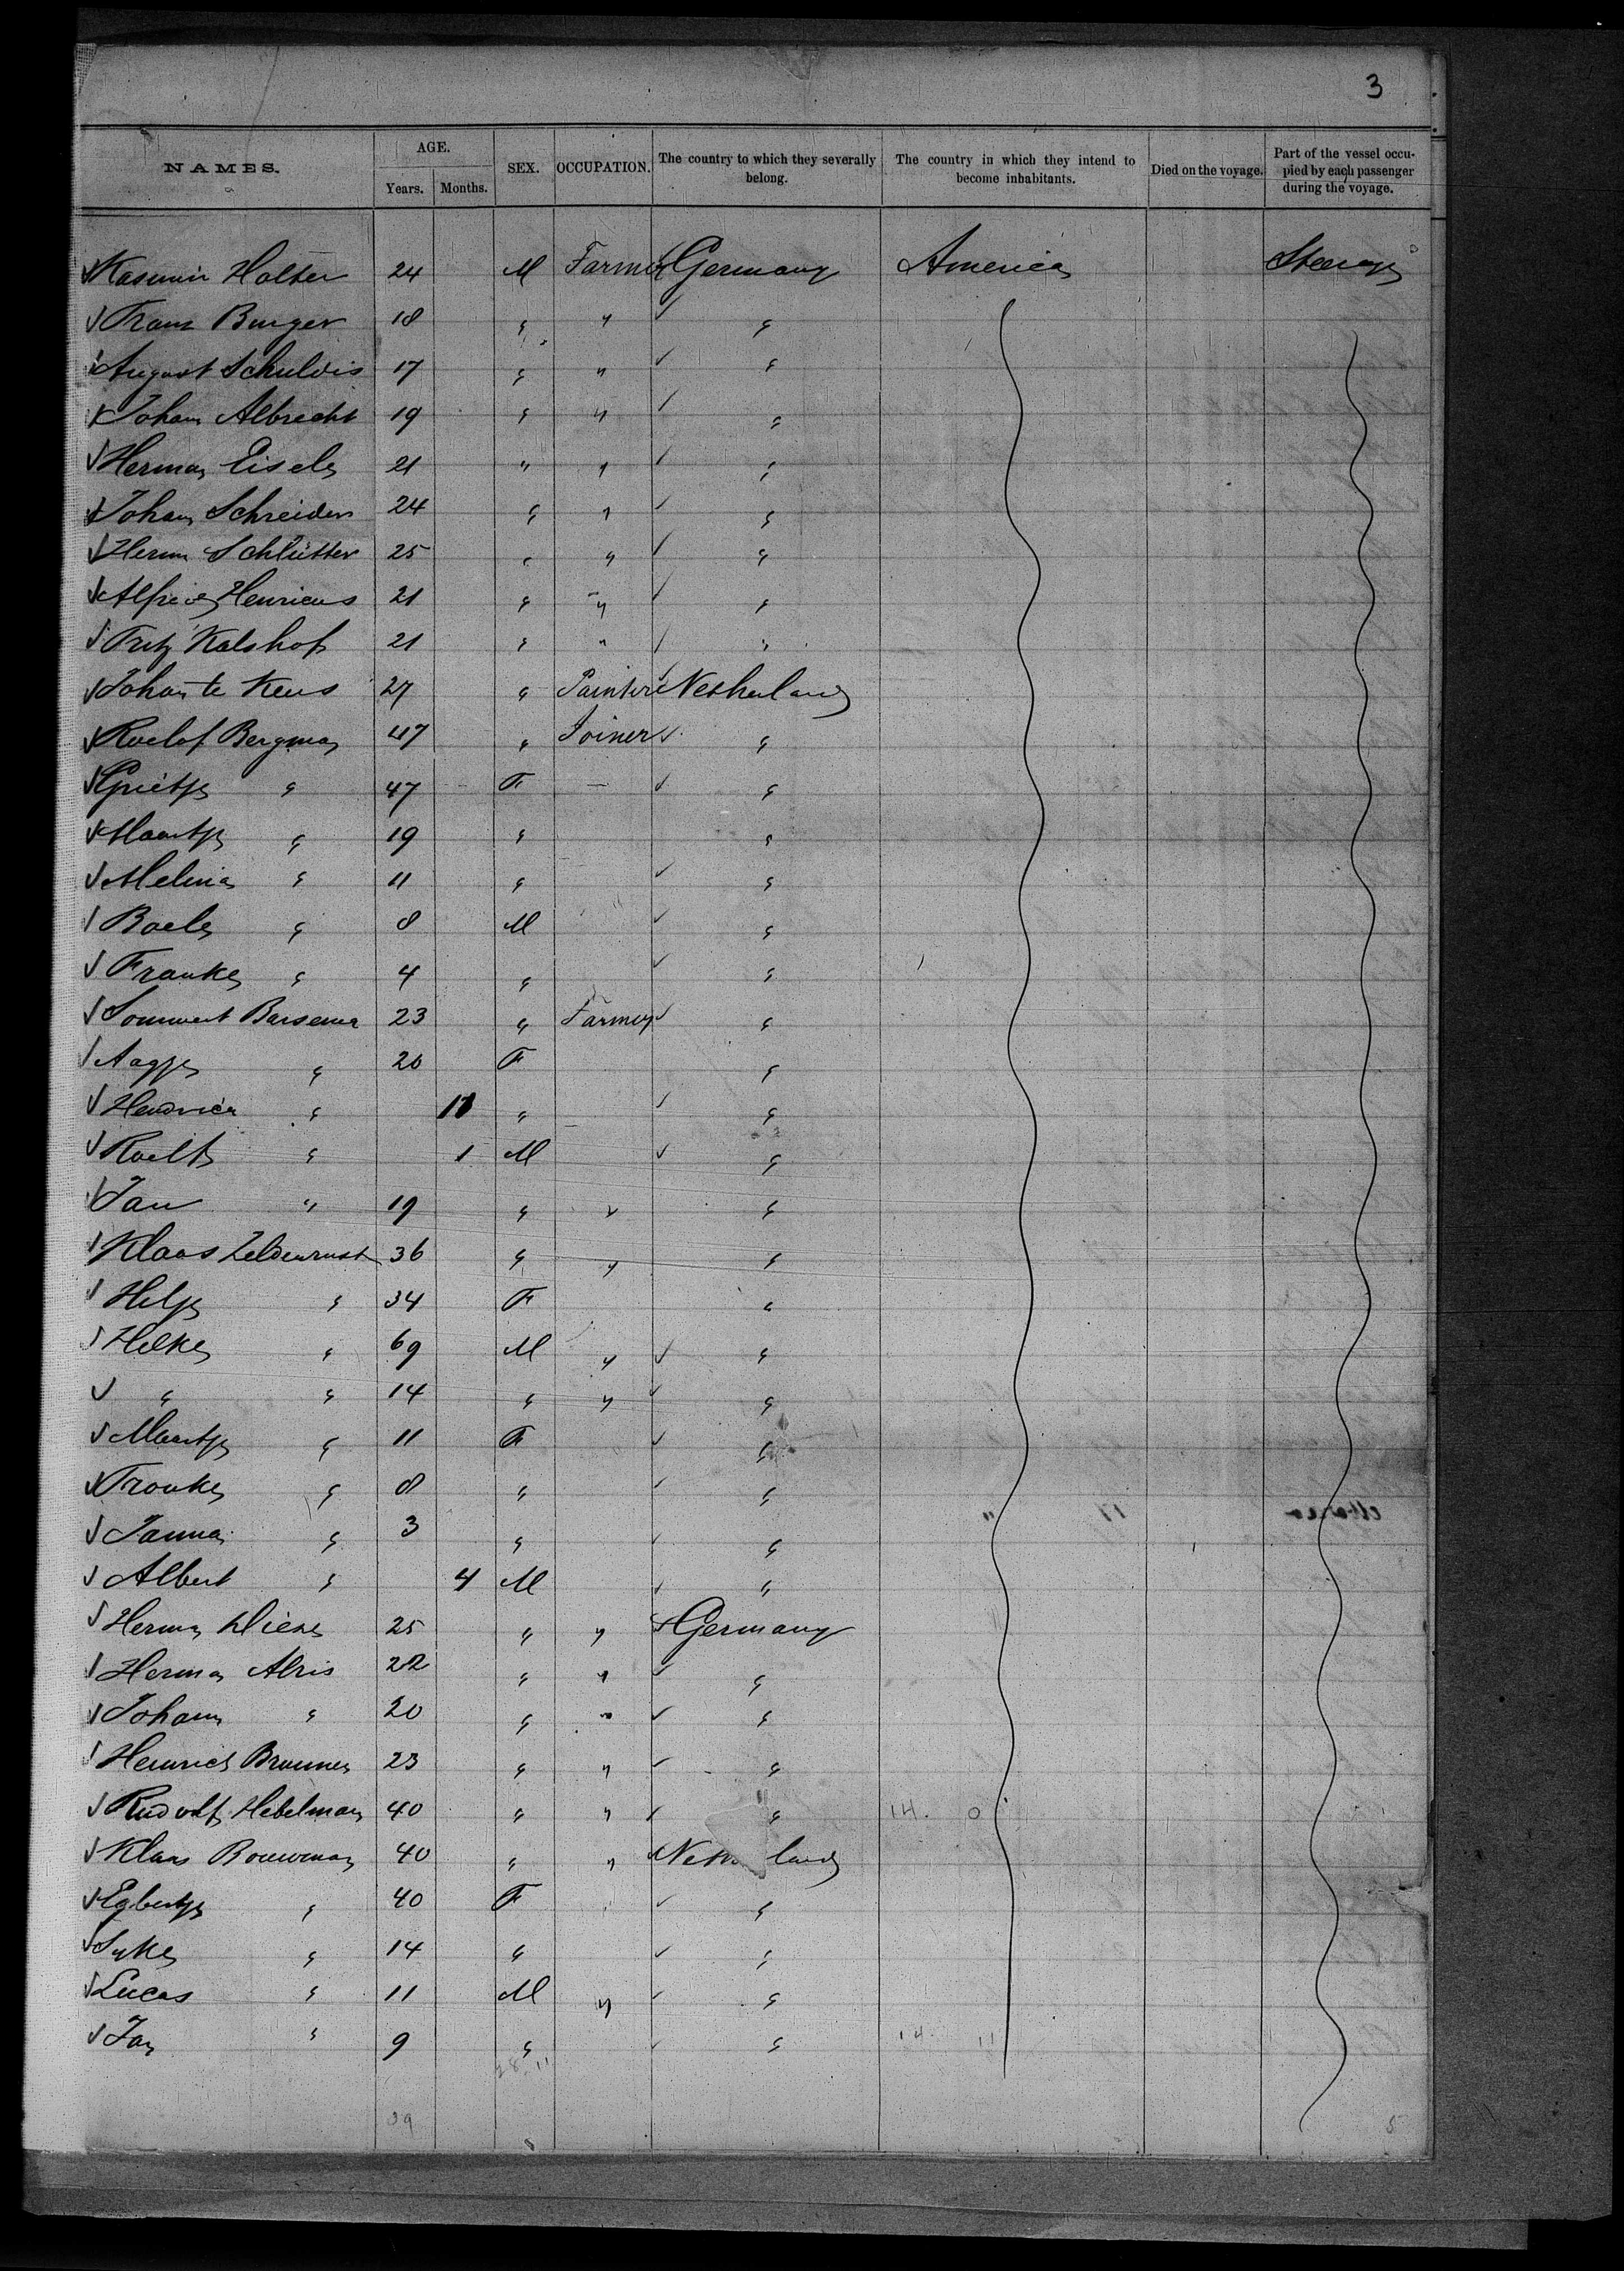 3
NAMES. AGE. Years. Months. SEX. OCCUPATION. The country to which they severally belong. The country in which they intend to become inhabitants. Died on the voyage. Part of the vessel occupied by each passenger during the voyage.
Kasimir Holter 24 M Farmer Germany America Steerage
Franz Burger 18 " " "
August Schuldis 17 " " "
Johan Albrecht 19 " " "
Herman Eisele 21 " " "
Johan Schreider 24 " " "
Herm Schlütter 25 " " "
Alfred Henricus 21 " " "
Fritz Kalshof 21 " " "
Johan te Keus 27 " Painter Netherland
Roelof Bergman 47 " Joiner "
Grietje " 47 F — "
Maartje " 19 " "
Melina " 11 " "
Boele " 8 M "
Frauke " 4 " "
Barsema 23 " Farmer "
Aagje " 20 F "
Hendrica " 11 " "
Roelf " 1 M "
Jan " 19 " " "
Klaas Zeldenrust 36 " " "
Hilje " 34 F "
Hilke " 69 M " "
" " 14 " " "
Maartje " 11 F "
Trouke " 8 " "
Janna " 3 " "
Albert " 4 M "
Herman 25 " " Germany
Herman Alris 22 " " "
Johann " 20 " " "
Heinrich Brunner 23 " " "
Rudolf Hebelman 40 " " " 14. 0
Klaas Bouwman 40 " " Netherland
Egbertje " 40 F "
Syke " 14 " "
Lucas " 11 M " "
Jan " 9 " " 14. 11
28 11
39 5